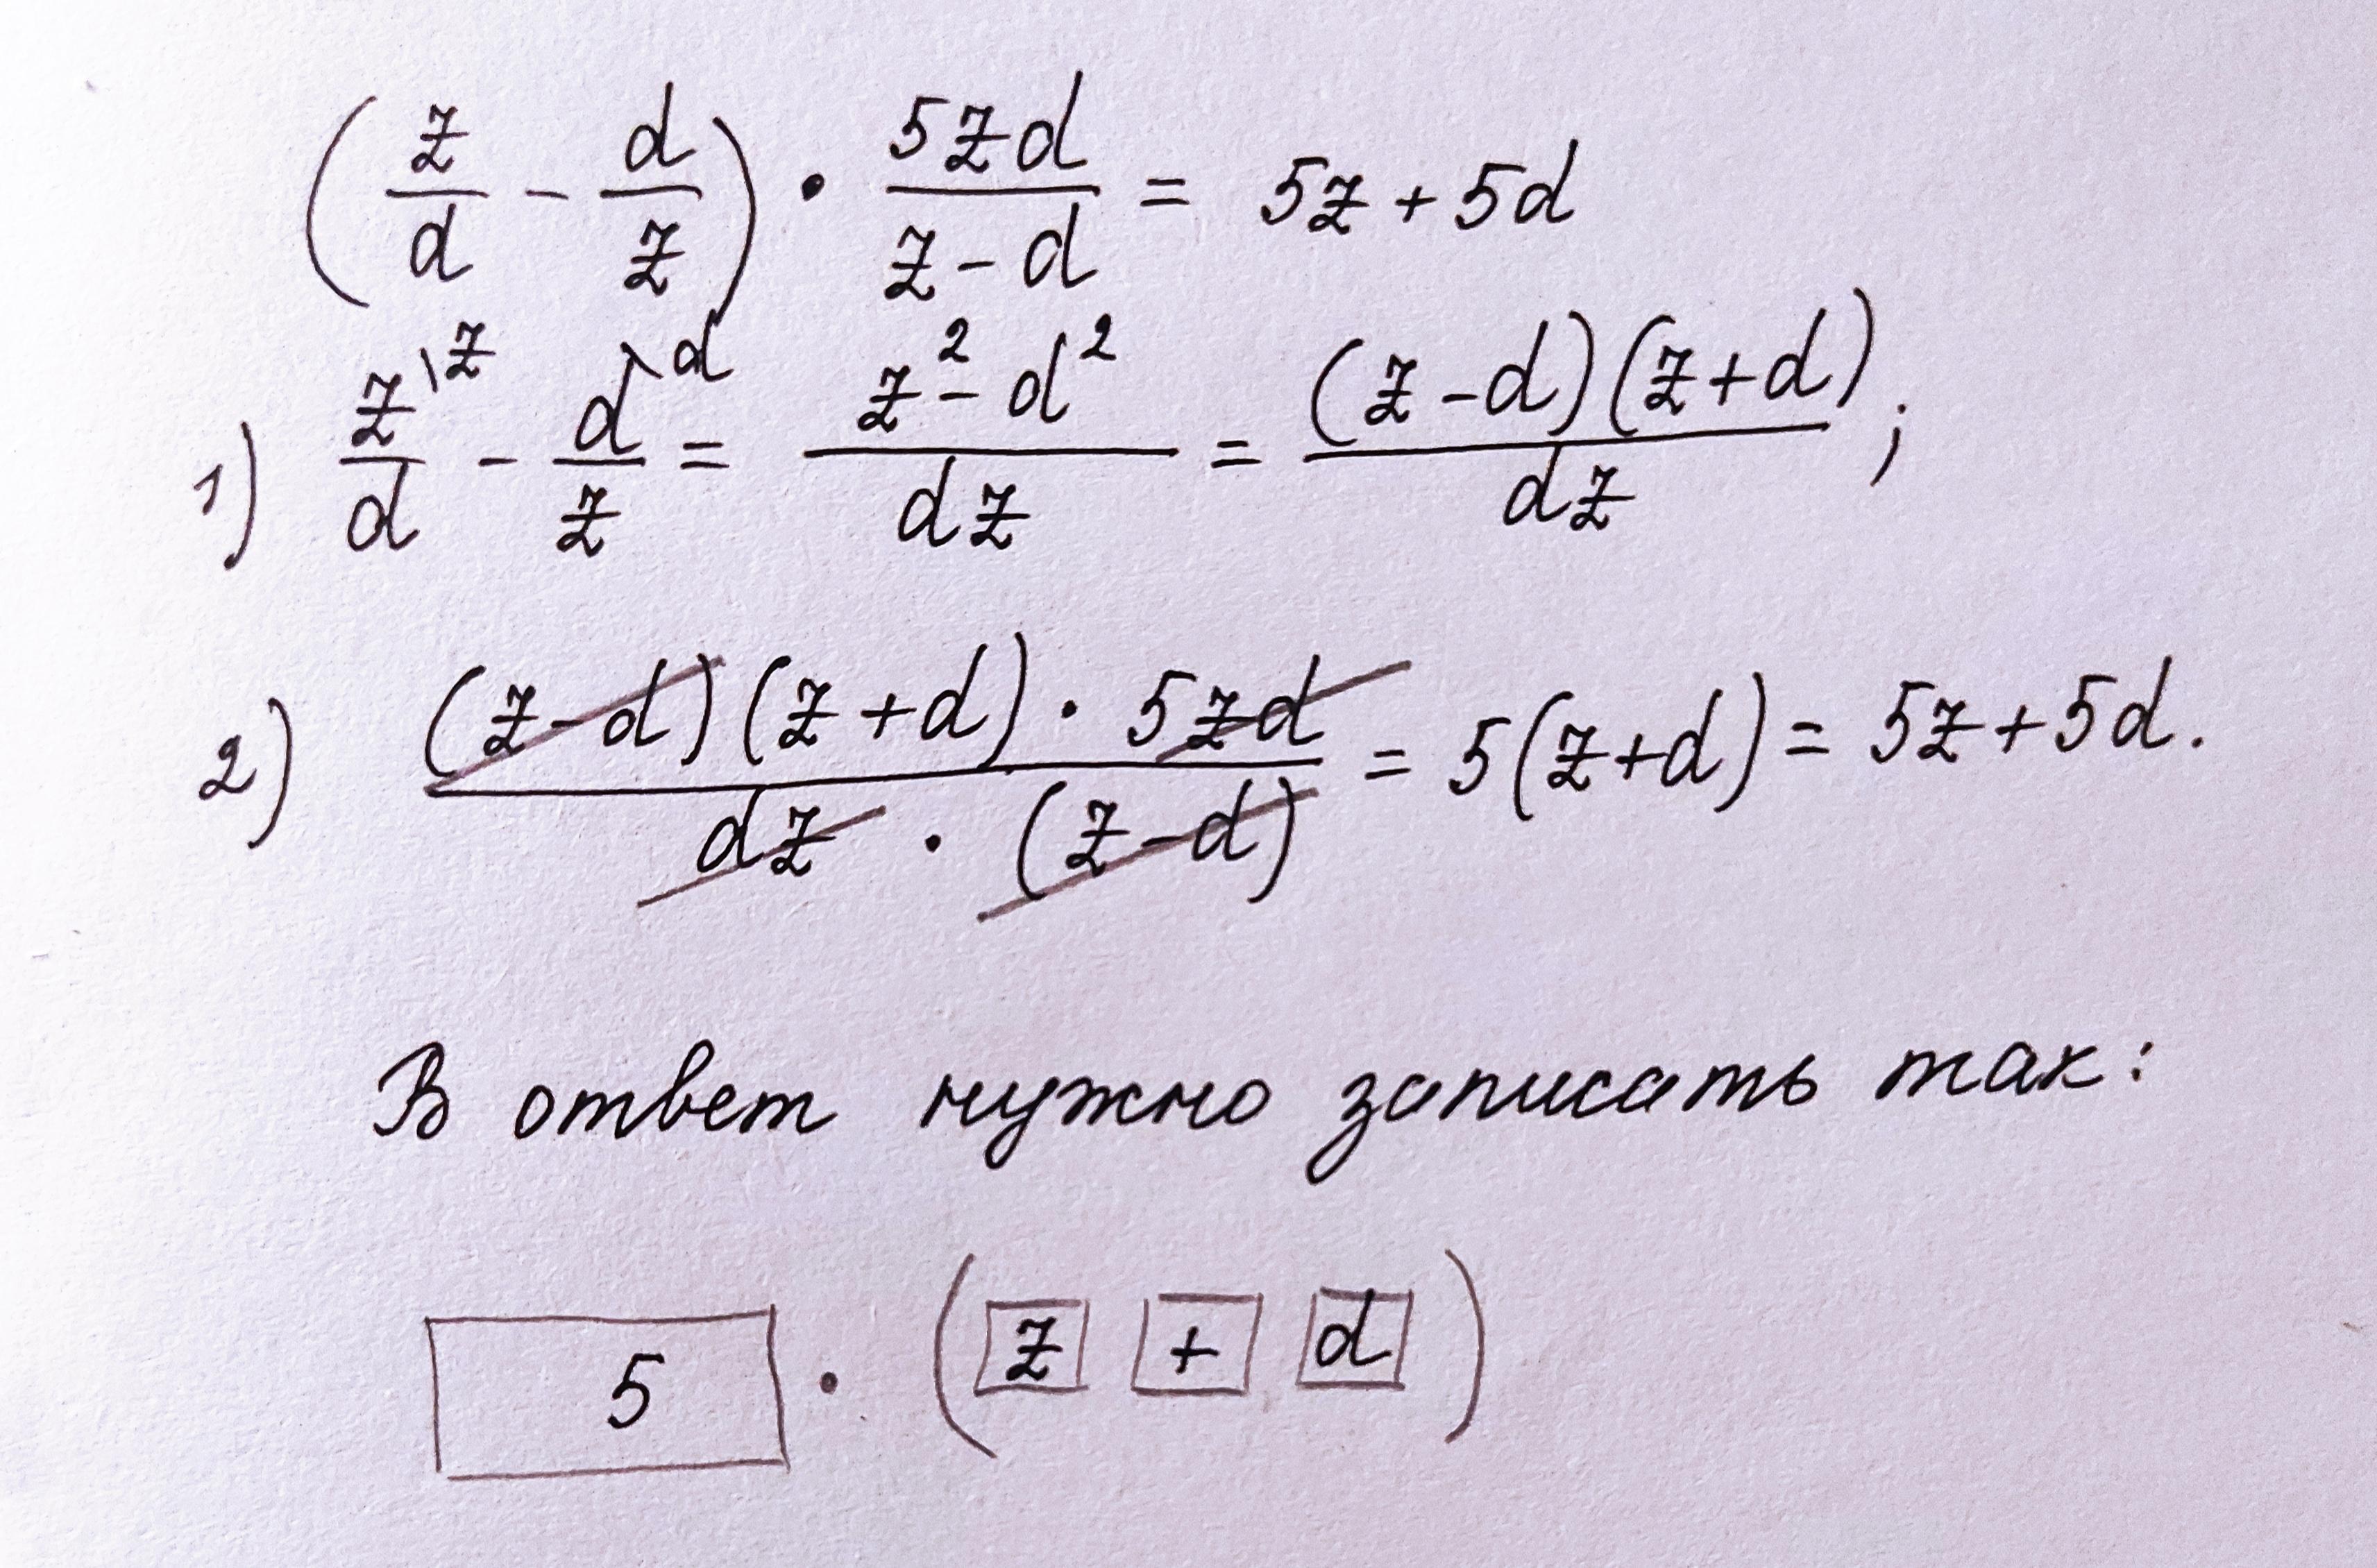 (z/d - d/z) · 5zd/(z-d) = 5z + 5d
1) z\z/d - d\d/z = (z² - d²)/dz = (z-d)(z+d)/dz ;
2) (z-d)(z+d) · 5zd/(dz · (z-d)) = 5(z+d) = 5z + 5d.
В ответ нужно записать так:
5 · (z + d)